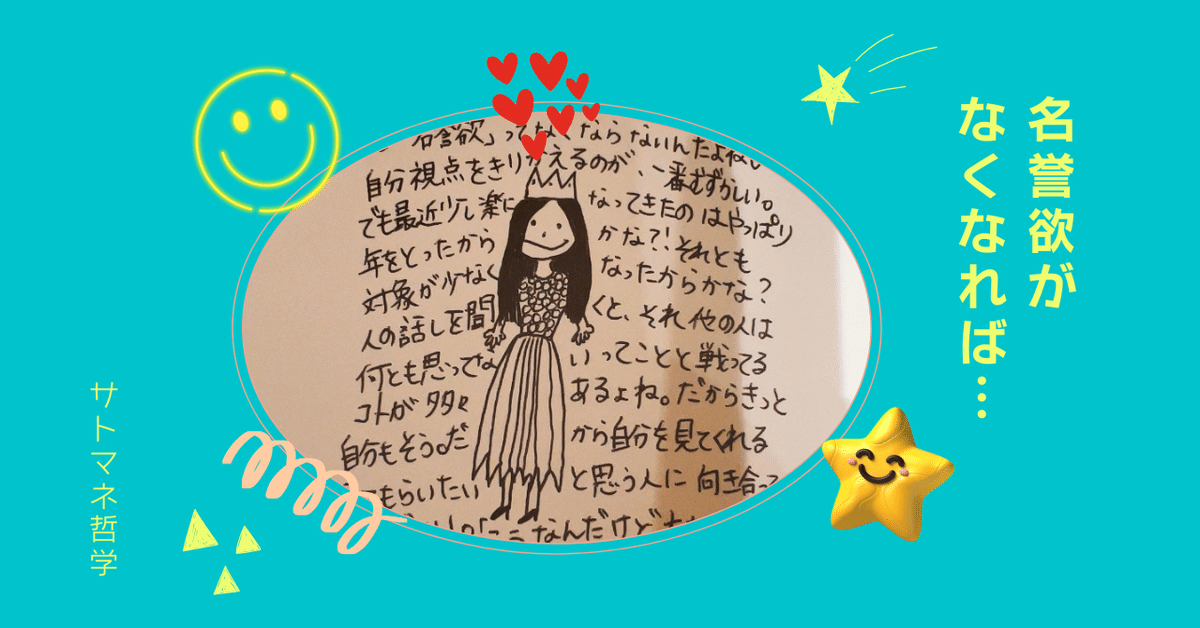 名誉欲が
なくなれば…
名誉欲」ってなくならないんだよね。
自分視点をきりかえるのが、一番むずかしい。
でも最近少し楽になってきたのはやっぱり
年をとったからかな?!それとも
対象が少なくなったからかな?
人の話しを聞くと、それ他の人は
何とも思ってないってことと戦ってる
コトが多々あるよね。だからきっと
自分もそう。だから自分を見てくれる
もらいたいと思う人に向き合って
なんだけど
サトマネ哲学